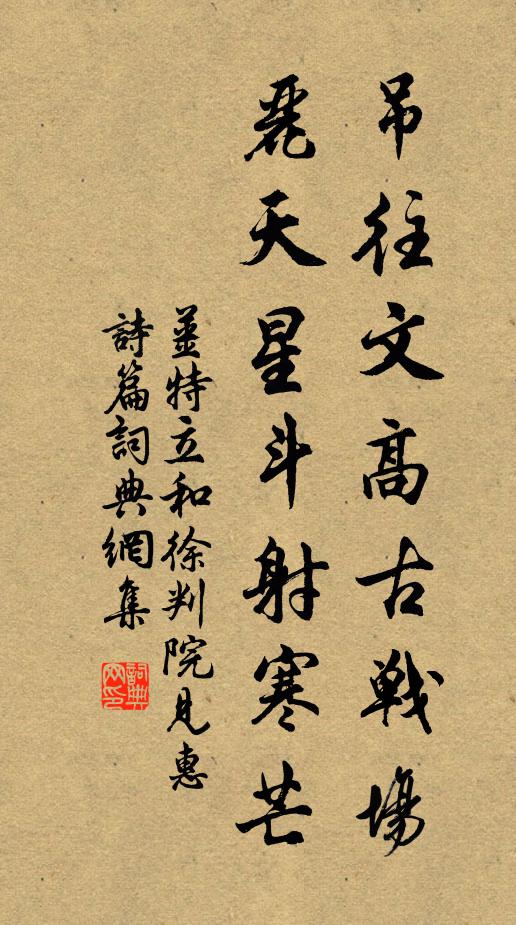 吊往文高古戰場
麗天星斗射寒芒
薑特立和徐判院見惠
詩篇詞典網集
詞典网印